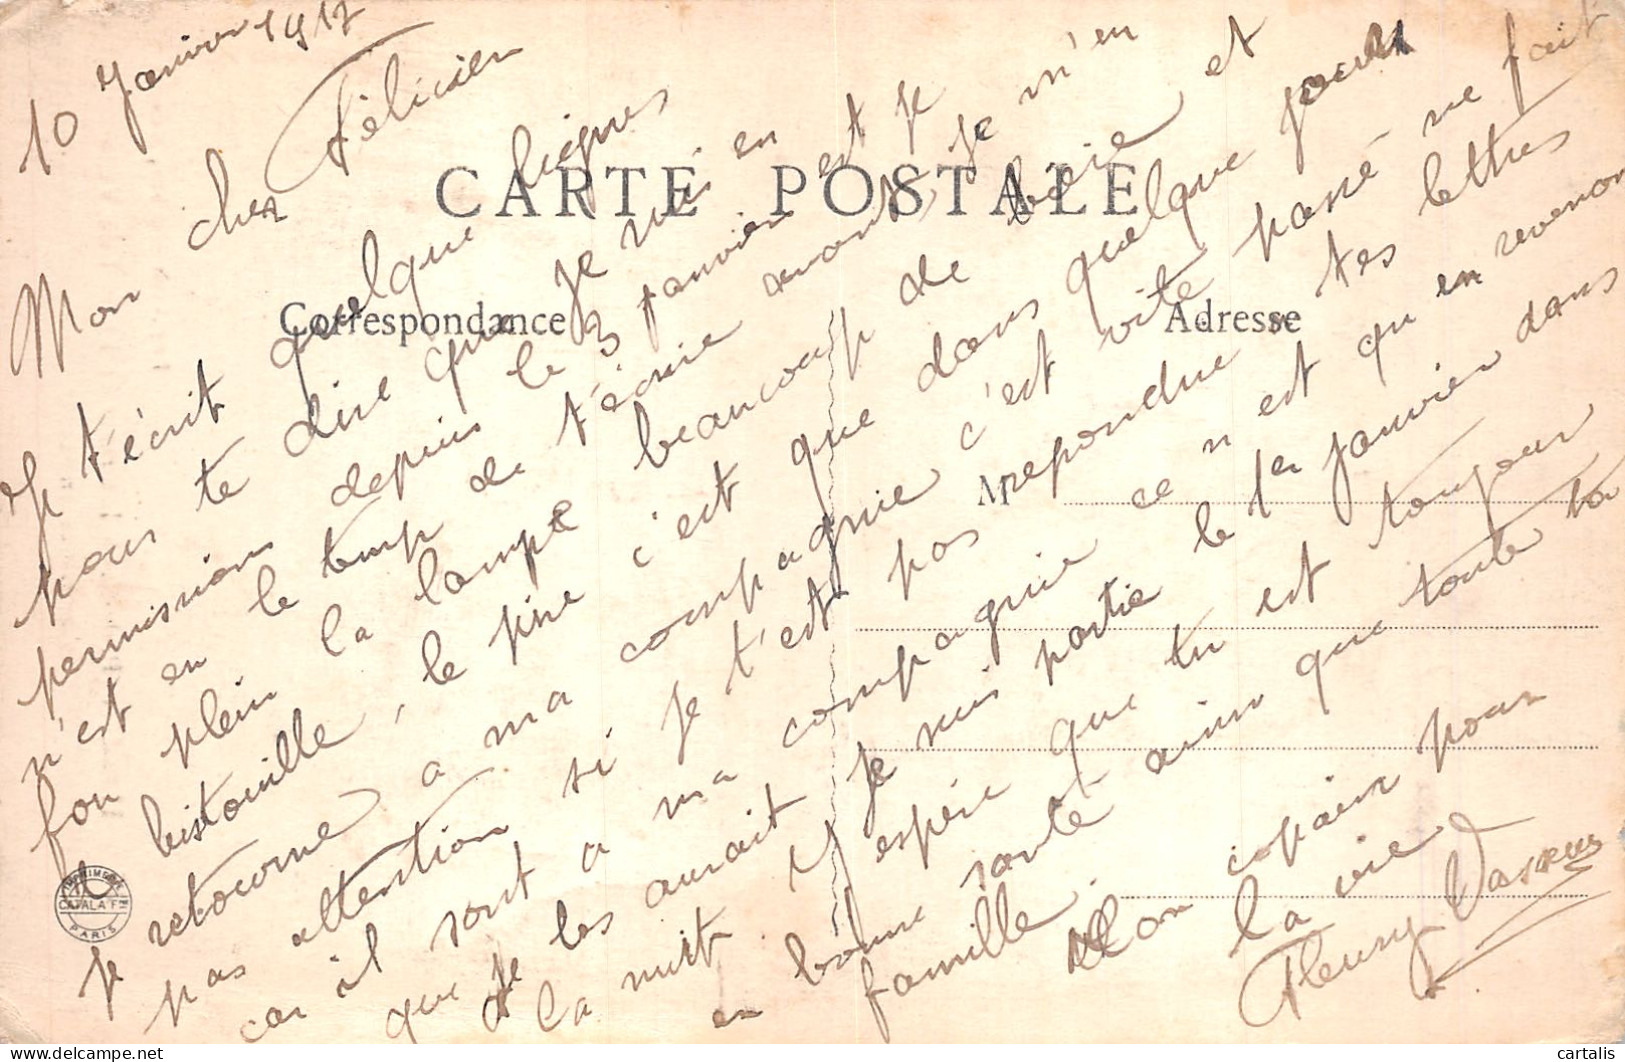 10 Janvier 1917
Mon cher Félicien
Je t'écrit quelque lignes
pour te dire que je suis en
permission depuis le 3 janvier et je
n'est en le temp de t'écrire avant, je m'en
fou plein la lampe beaucoup de boire et
bistouille, le pire c'est que dans quelque jours
je retourne a ma compagnie c'est vite passé ne fait
pas attention si je t'est pas repondue tes lettres
car il sont a ma compagnie ce n'est qu en revenon
que je les aurait je suis partie le 1er janvier dans
la nuit. J'espère que tu est toujour
en bonne santé ainsi que toute ta
famille. Mon copain pour
la vie
Fleury Vasseur
CARTE POSTALE
Correspondance
Adresse
M
IMPRIMERIE
CATALA Frs
PARIS
cartalis